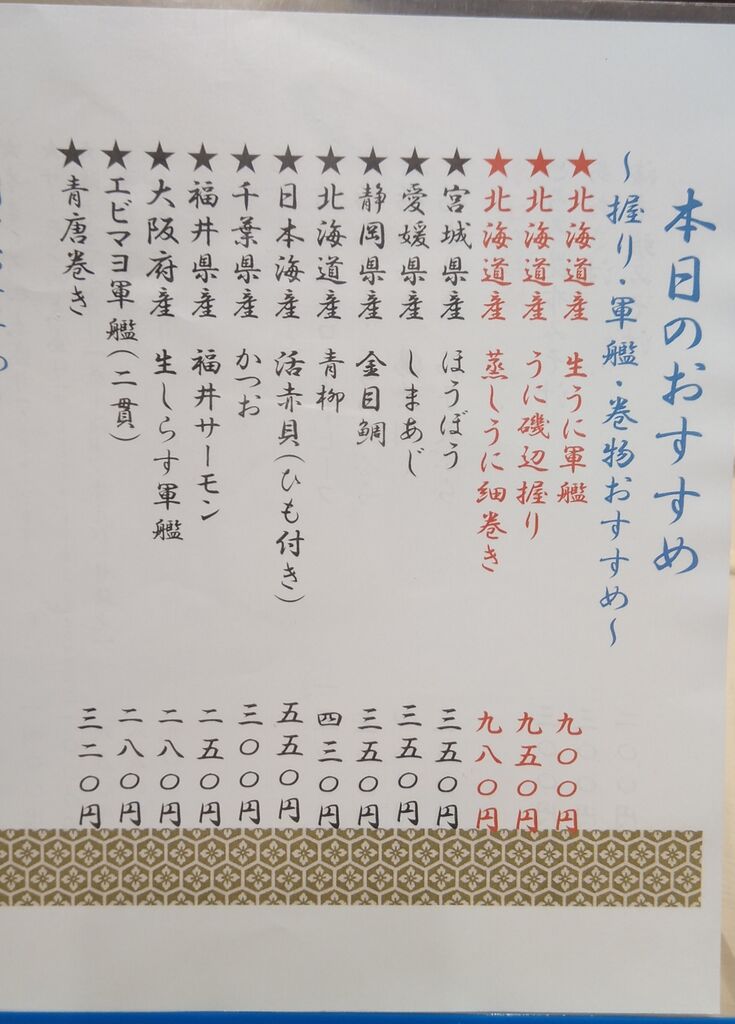 本日のおすすめ
〜握り・軍艦・巻物おすすめ〜
★北海道産 生うに軍艦 九〇〇円
★北海道産 うに磯辺握り 九五〇円
★北海道産 蒸しうに細巻き 九八〇円
★宮城県産 ほうぼう 三五〇円
★愛媛県産 しまあじ 三五〇円
★静岡県産 金目鯛 三五〇円
★北海道産 青柳 四三〇円
★日本海産 活赤貝(ひも付き) 五五〇円
★千葉県産 かつお 三〇〇円
★福井県産 福井サーモン 二五〇円
★大阪府産 生しらす軍艦 二八〇円
★エビマヨ軍艦(二貫) 二八〇円
★青唐巻き 三二〇円